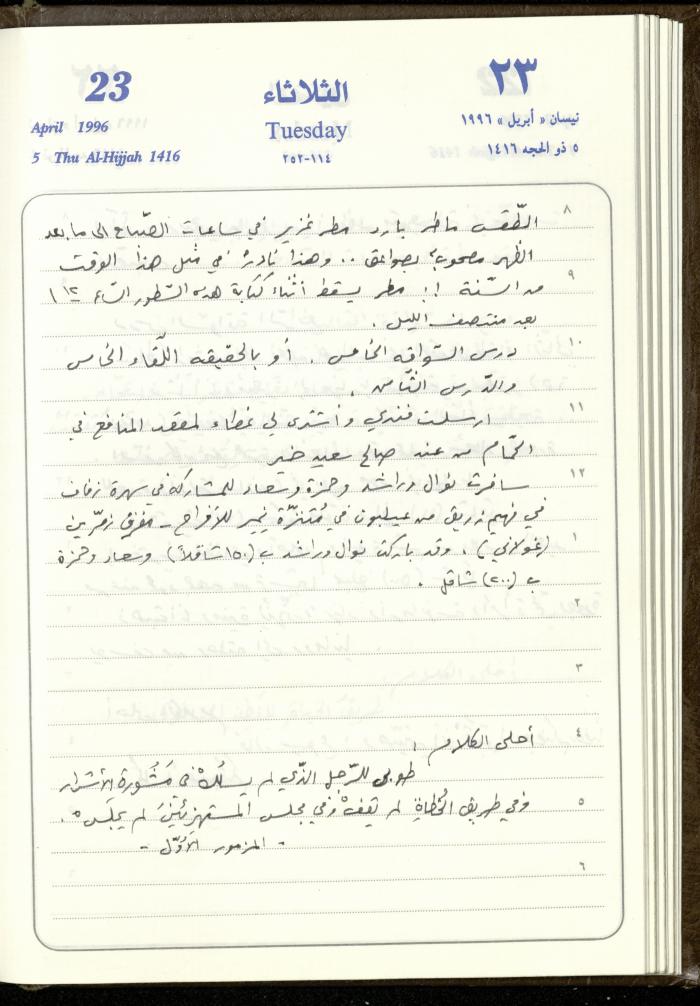 23
April 1996
5 Thu Al-Hijjah 1416
الثلاثاء
Tuesday
٢٥٢-١١٤
٢٣
نيسان « أبريل » ١٩٩٦
٥ ذو الحجه ١٤١٦
٨
الطّقس ماطر بارد مطر غزير في ساعات الصّباح الى ما بعد
الظهر مصحوب بصواعق .. وهذا نادرٌ في مثل هذا الوقت
٩
من السّنة !! مطر يسقط أثناء كتابة هذه السّطور
بعد منتصف الليل .
١٠
درس السّواقه الخامس . أو بالحقيقه اللّقاء الخامس
والدّرس الثّامن .
١١
ارسلت فندي وأشترى لي غطاء لمقعد المنافع في
الحمّام من عند صالح سعيد خير
١٢
سافرت نوال وراشد وحمزة وسعاد للمشاركة في سهرة زفاف
في فهيم زريق من عيلبون في مُتنزّة نمير للأفراح - مفرق زمرّين
١
(غولاني) . وقد باركت نوال وراشد ب (١٥٠ شاقلاً) وسعاد وحمزة
ب (٢٠٠) شاقل .
٢
٣
٤
أحلى الكلام :
طوبى للرّجل الذّي لم يسلُكْ في مَشُورة الأشرار
٥
وفي طريق الخُطاةِ لم يقفْ وفي مجلس المستهزئينَ لم يجلسْ .
- المزمور الأوّل -
٦